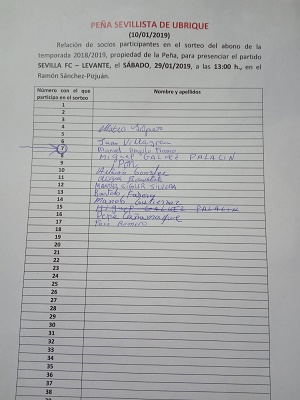 PEÑA SEVILLISTA DE UBRIQUE
(10/01/2019)
Relación de socios participantes en el sorteo del abono de la
temporada 2018/2019, propiedad de la Peña, para presenciar el partido
SEVILLA FC – LEVANTE, el SÁBADO, 29/01/2019, a las 13:00 h., en el
Ramón Sánchez-Pizjuán.
Número con el que participa en el sorteo Nombre y apellidos
1
2
3
4
5
6 Juan Villagrán
7 Manuel
8 MIGUEL GALVEZ PALACIN
9
10 Arturo
11
12 MANUEL SIGLER SILVERA
13 Bartolo
14 Manolo Gutierrez
15 MIGUEL GALVEZ PALACIN
16 Pepe
17 Paco Romero
18
19
20
21
22
23
24
25
26
27
28
29
30
31
32
33
34
35
36
37
38
39